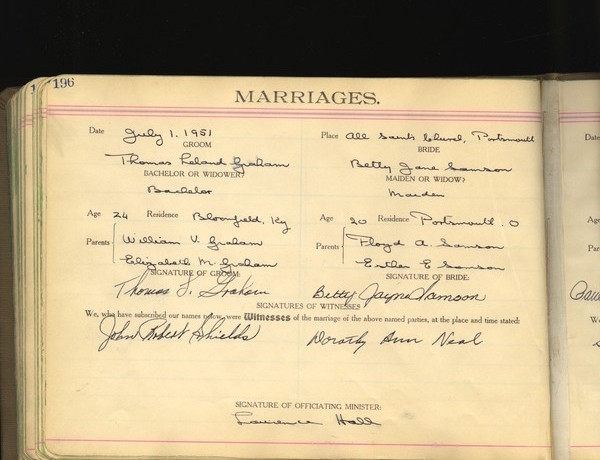 196
MARRIAGES.
Date July 1. 1951 Place All Saints Church, Portsmouth
GROOM BRIDE
Thomas Leland Graham Betty Jane Samson
BACHELOR OR WIDOWER? MAIDEN OR WIDOW?
Bachelor Maiden
Age 24 Residence Bloomfield, Ky Age 20 Residence Portsmouth. O
Parents William V. Graham Parents Floyd A. Samson
Elizabeth M. Graham Esther E Samson
SIGNATURE OF GROOM: SIGNATURE OF BRIDE:
Thomas L. Graham Betty Jayne Samson
SIGNATURES OF WITNESSES
We, who have subscribed our names below, were Witnesses of the marriage of the above named parties, at the place and time stated:
John Robert Shields Dorothy Ann Neal
SIGNATURE OF OFFICIATING MINISTER:
Lawrence Hall
Date
Ag
Par
W